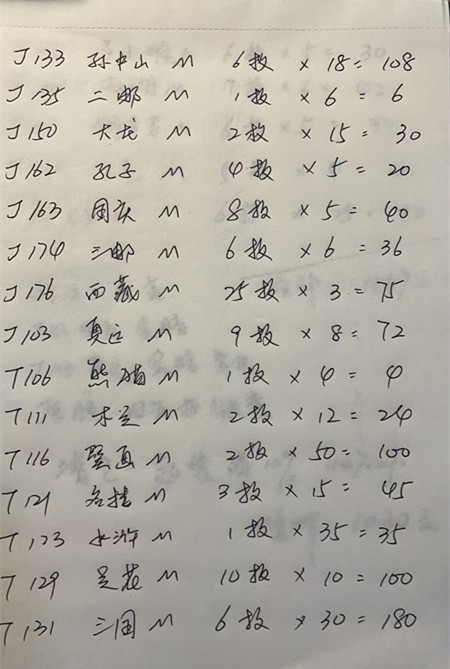 J133 孙中山 M 6枚 × 18 = 108
J135 二邮 M 1枚 × 6 = 6
J150 大龙 M 2枚 × 15 = 30
J162 孔子 M 4枚 × 5 = 20
J163 国庆 M 8枚 × 5 = 40
J174 三邮 M 6枚 × 6 = 36
J176 西藏 M 25枚 × 3 = 75
J103 夏运 M 9枚 × 8 = 72
T106 熊猫 M 1枚 × 4 = 4
T111 木兰 M 2枚 × 12 = 24
T116 壁画 M 2枚 × 50 = 100
T121 名楼 M 3枚 × 15 = 45
T123 水浒 M 1枚 × 35 = 35
T129 兰花 M 10枚 × 10 = 100
T131 三国 M 6枚 × 30 = 180